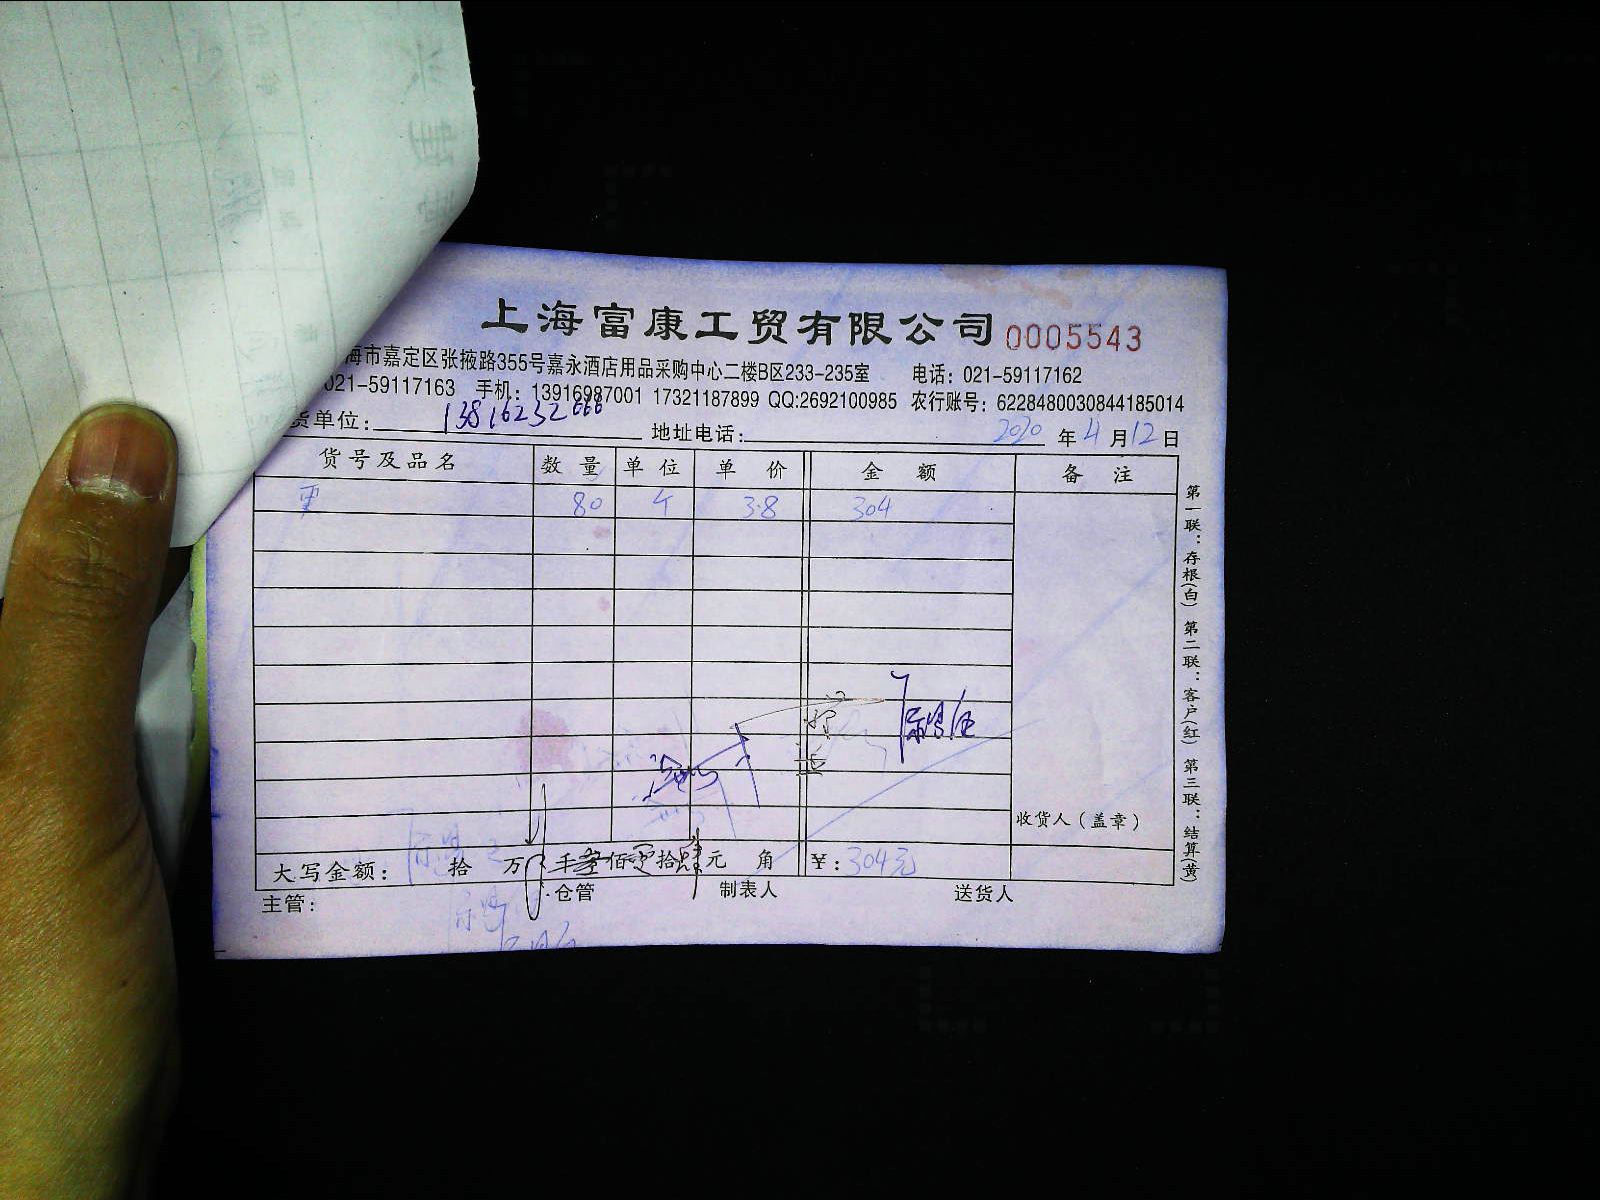 上海富康工贸有限公司 0005543
海市嘉定区张掖路355号嘉永酒店用品采购中心二楼B区233-235室 电话：021-59117162
021-59117163 手机：13916987001 17321187899 QQ:2692100985 农行账号：6228480030844185014
货单位： 13816232666 地址电话： 2020 年 4 月 12 日
货号及品名 数量 单位 单价 金额 备注
80 个 3.8 304
收货人（盖章）
大写金额： 拾 万 千 叁 佰 零 拾 肆 元 角 ￥：304元
主管： 仓管 制表人 送货人
第一联：存根(白) 第二联：客户(红) 第三联：结算(黄)